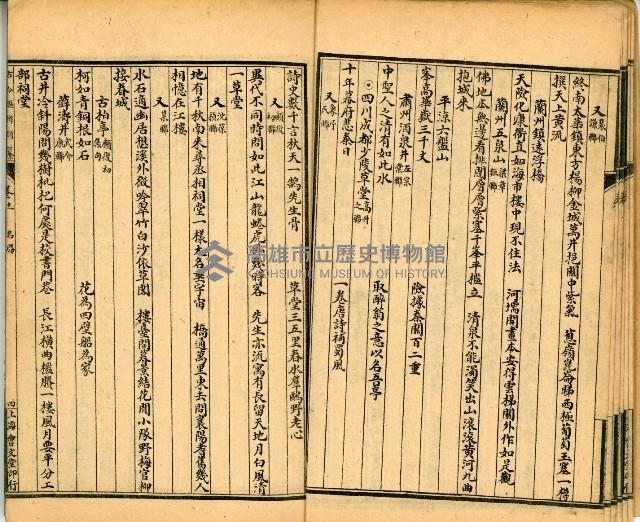 又
終南太華鎮東方楊柳金城萬井㧞關中紫氣 葱嶺崑崙睇西極葡萄玉塞一樽
撰天上黃流
蘭州鎮遠浮橋
天險化康衢直如海市樓中現不住法 河壖開畫本安得雲梯關外作如是觀
蘭州五泉山
佛地本無邊看排闥層層紫塞千峯平檻立 清泉不能濁笑出山滾滾黃河九曲
抱城來
平凉六盤山
峯高華嶽三千丈 險據秦關百二重
肅州酒泉井
中聖人之清有如此水 取醉翁之意以名吾亭
四川成都少陵草堂
十年幕府悲秦日 一卷唐詩補蜀風
又
詩史數千言秋天一鶴先生骨 草堂三五里春水羣鷗野老心
又
異代不同時問如此江山龍蜷虎臥幾詩客 先生亦流寓有長留天地月白風清
一草堂
又
地有千秋南來尋丞相祠堂一樣大名垂宇宙 橋通萬里東去問襄陽耆舊幾人
相憶在江樓
又
水石適幽居想溪外微吟翠竹白沙依草閣 樓臺開暮景結花間小隊野梅官柳
接春城
古柏亭
柯如青銅根如石 花為四壁船為家
薛濤井
古井冷斜陽問幾樹枇杷何處是校書門巷 長江橫曲檻賸一樓風月要平分工
部祠堂
四上海會文堂印行
高雄市立歷史博物館
KAOHSIUNG MUSEUM OF HISTORY